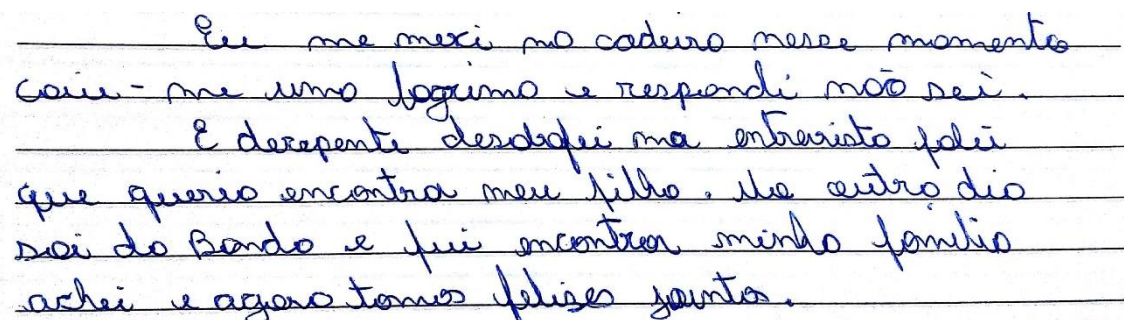 Eu me mexi na cadeira nesse momento
caiu-me uma lagrima e respondi não sei.
E derepente desabafei na entrevista falei
que queria encontra meu filho. No outro dia
sai da Banda e fui encontrar minha família
achei e agora tamos felizes juntos.